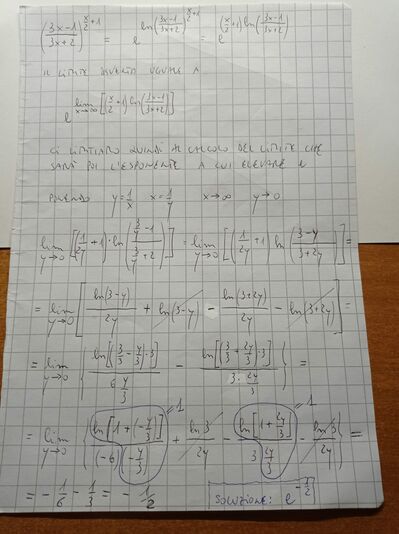 ((3x-1)/(3x+2))^(x/2+1) = e^(ln((3x-1)/(3x+2))^(x/2+1)) = e^((x/2+1) ln((3x-1)/(3x+2)))
IL LIMITE DIVENTA UGUALE A
e^(lim x→∞ [(x/2+1) ln((3x-1)/(3x+2))])
CI LIMITIAMO QUINDI AL CALCOLO DEL LIMITE CHE
SARÀ POI L'ESPONENTE A CUI ELEVARE e
PONENDO y=1/x x=1/y x→∞ y→0
lim y→0 [(1/2y+1)·ln((3/y-1)/(3/y+2))] = lim y→0 [(1/2y+1) ln((3-y)/(3+2y))] =
= lim y→0 [ln(3-y)/2y + ln(3-y) - ln(3+2y)/2y - ln(3+2y)] =
= lim y→0 {ln[(3/3-y/3)·3]/(6 y/3) - ln[(3/3+2y/3)·3]/(3·2y/3)} =
= lim y→0 {ln[1+(-y/3)]/((-6)(-y/3)) + ln 3/2y - ln[1+2y/3]/(3 2y/3) - ln 3/2y} =
=1 =1
= -1/6 - 1/3 = -1/2 SOLUZIONE: e^(-1/2)